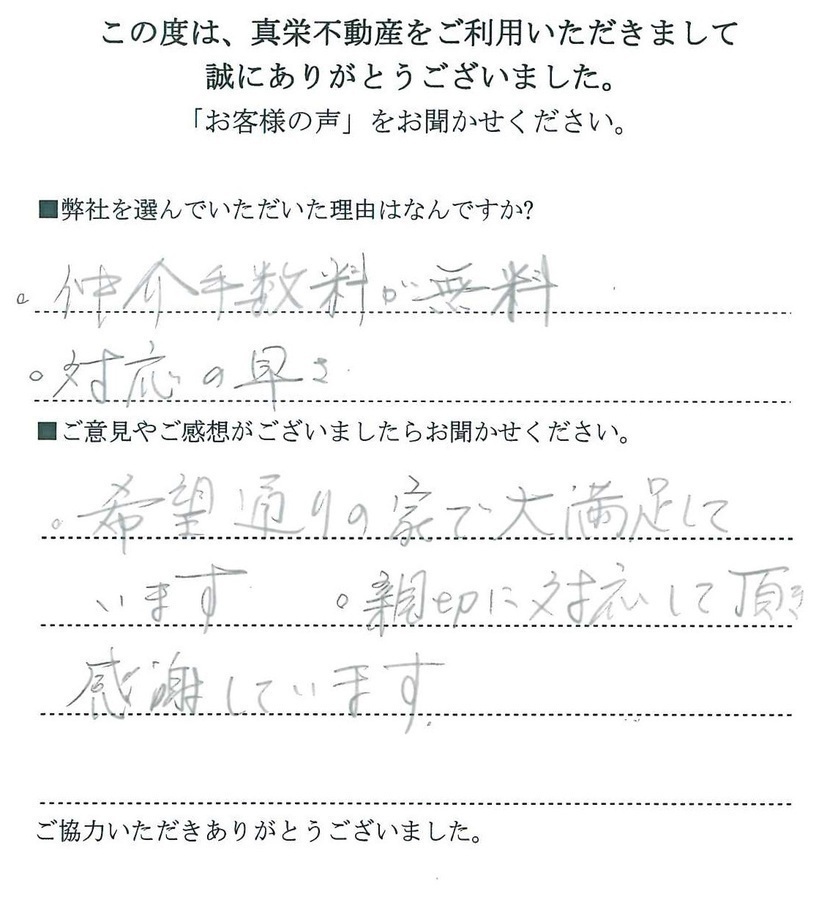 この度は、真栄不動産をご利用いただきまして
誠にありがとうございました。
「お客様の声」をお聞かせください。
■弊社を選んでいただいた理由はなんですか?
。仲介手数料が無料
。対応の早さ
■ご意見やご感想がございましたらお聞かせください。
。希望通りの家で大満足して
います 。親切に対応して頂き
感謝しています.
ご協力いただきありがとうございました。